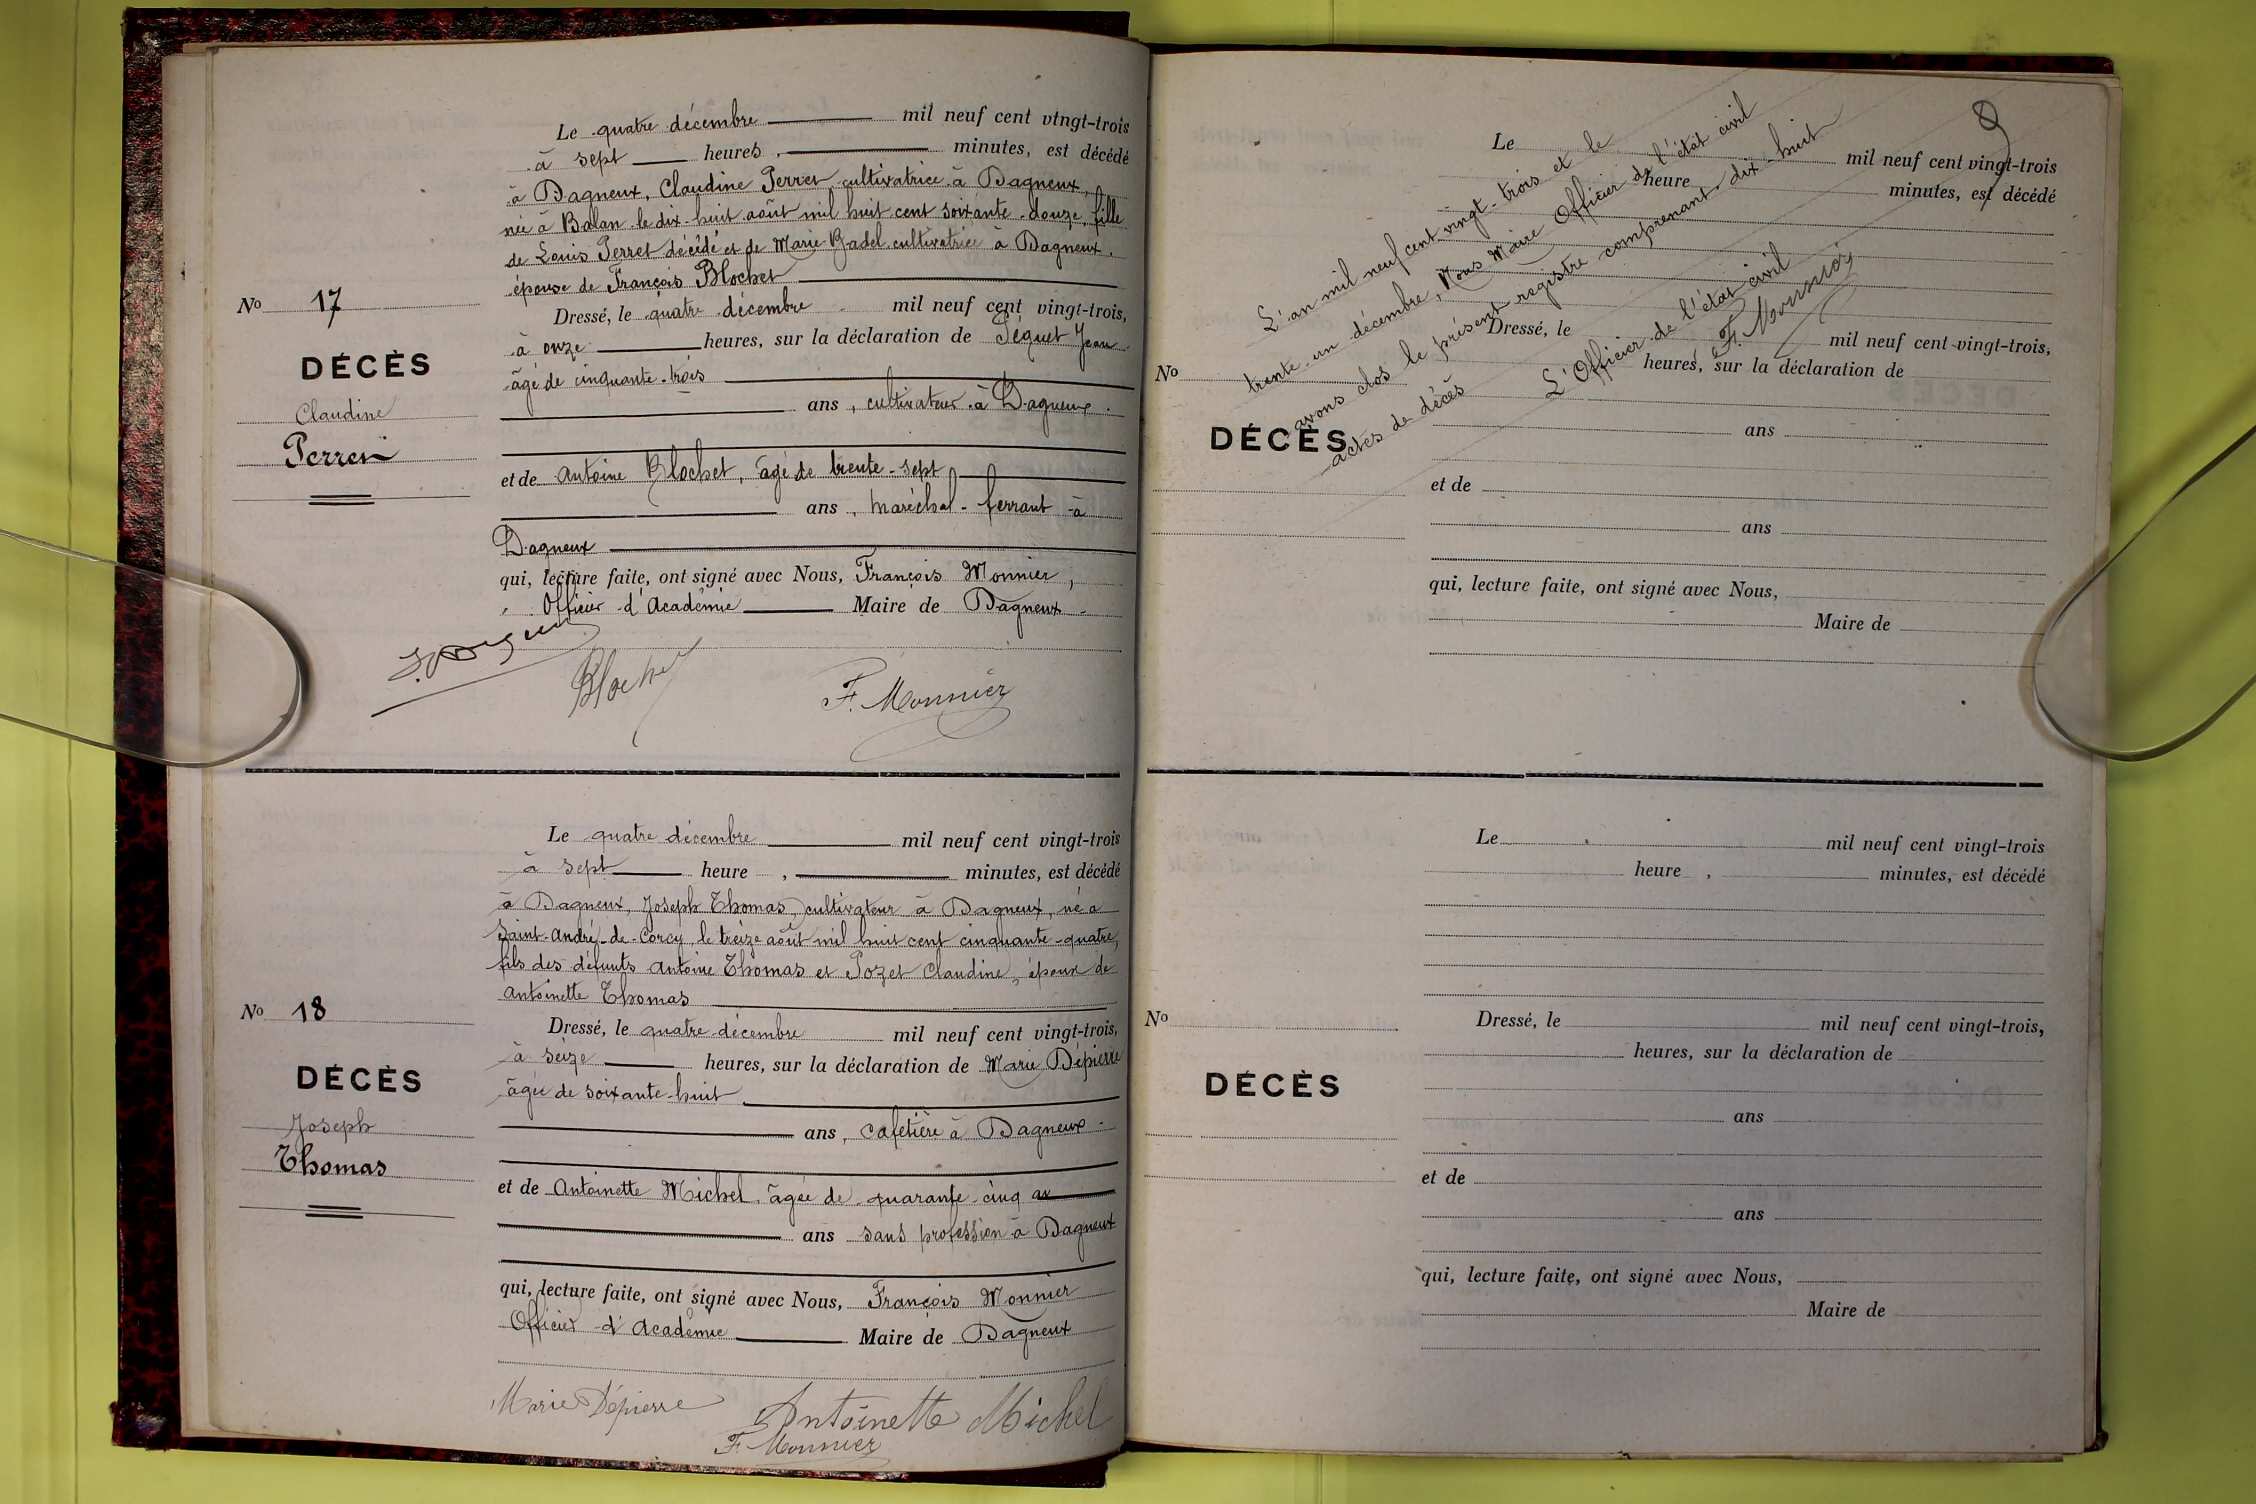 Le quatre décembre mil neuf cent vingt-trois
à sept heures, minutes, est décédé
à Dagneux, Claudine Perret, cultivatrice à Dagneux,
née à Balan le dix-huit août mil huit cent soixante-douze, fille
de Louis Perret décédé et de Marie Badel cultivatrice à Dagneux.
épouse de François Blochet
No 17
Dressé, le quatre décembre mil neuf cent vingt-trois,
à onze heures, sur la déclaration de Péquet Jean
âgé de cinquante-trois
DÉCÈS
Claudine
Perret
ans, cultivateur à Dagneux.
et de Antoine Blochet, âgé de trente-sept
ans, maréchal-ferrant à
Dagneux
qui, lecture faite, ont signé avec Nous, François Monnier,
Officier d'Académie Maire de Dagneux
Blochet
F. Monnier
Le quatre décembre mil neuf cent vingt-trois
à sept heure, minutes, est décédé
à Dagneux, Joseph Thomas, cultivateur à Dagneux, né à
Saint-André-de-Corcy le treize août mil huit cent cinquante-quatre,
fils des défunts Antoine Thomas et Pozet Claudine, époux de
Antoinette Thomas
No 18
Dressé, le quatre décembre mil neuf cent vingt-trois,
à seize heures, sur la déclaration de Marie Dépierre
âgée de soixante-huit
DÉCÈS
Joseph
Thomas
ans, cafetière à Dagneux.
et de Antoinette Michel, âgée de quarante-cinq
ans sans profession à Dagneux
qui, lecture faite, ont signé avec Nous, François Monnier
Officier d'Académie Maire de Dagneux
Marie Dépierre
Antoinette Michel
F. Monnier
L'an mil neuf cent vingt-trois et le
trente-un décembre, Nous Maire Officier de l'état civil
avons clos le présent registre comprenant dix-huit
actes de décès
L'Officier de l'état civil
F. Monnier
Le mil neuf cent vingt-trois
heure minutes, est décédé
Dressé, le mil neuf cent vingt-trois,
No
heures, sur la déclaration de
DÉCÈS
ans
et de
ans
qui, lecture faite, ont signé avec Nous,
Maire de
Le mil neuf cent vingt-trois
heure , minutes, est décédé
No
Dressé, le mil neuf cent vingt-trois,
heures, sur la déclaration de
DÉCÈS
ans
et de
ans
qui, lecture faite, ont signé avec Nous,
Maire de